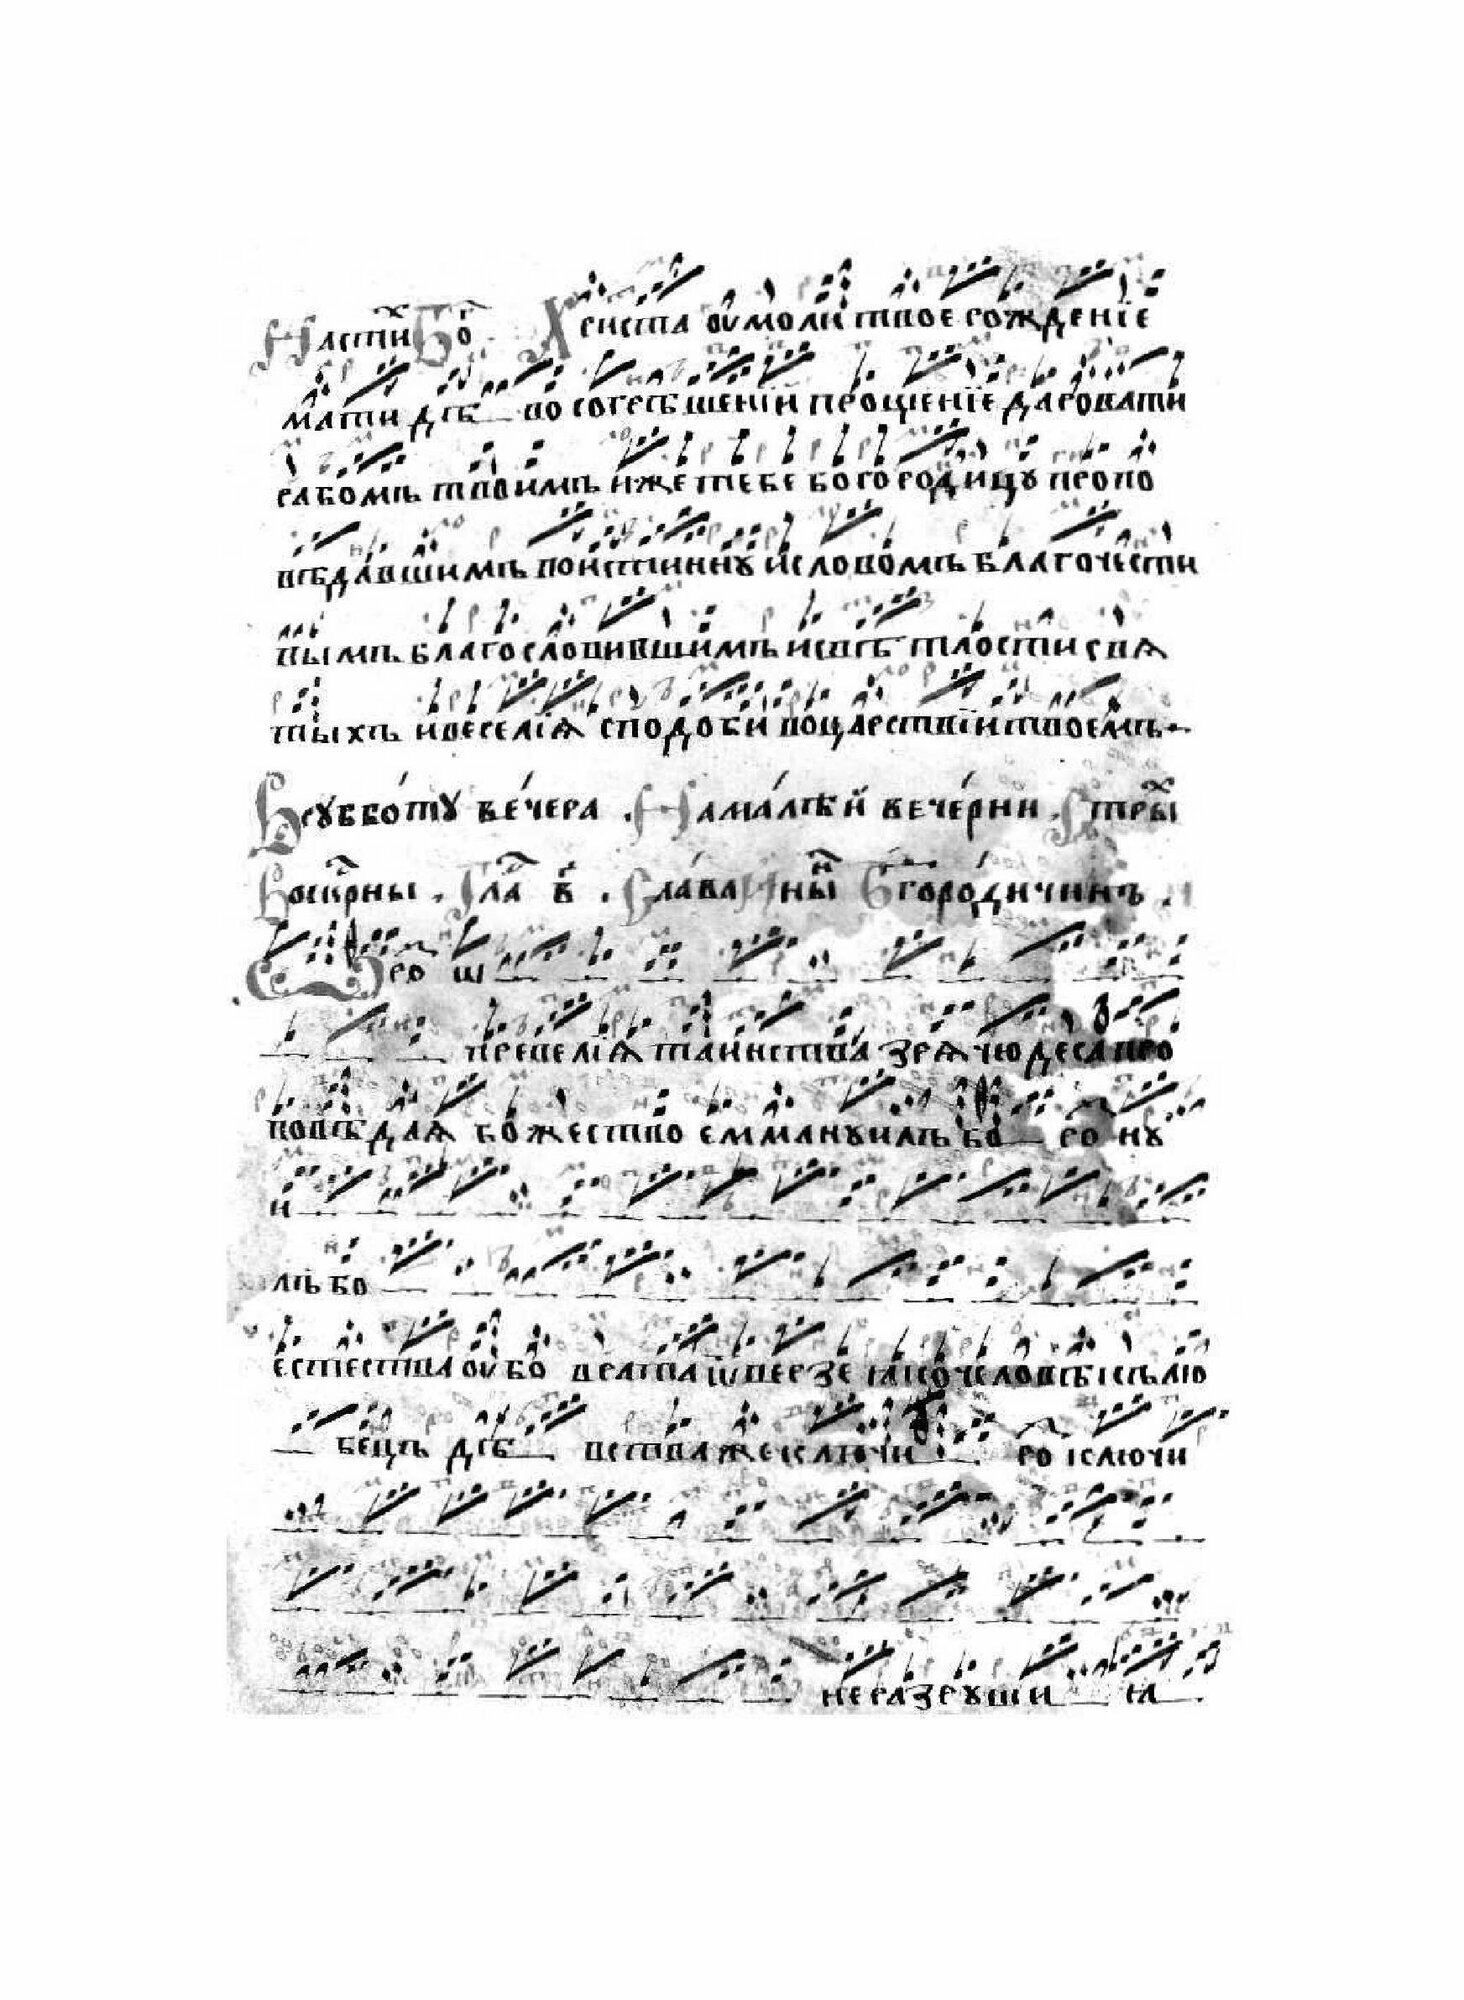 На стих Бо Христа оумоли твое рождение
мати дѣ во согрѣшений прощение даровати
рабомъ твоимъ иже тебе богородицу пропо
вѣдавшимъ воистинну и словомъ благочести
вымъ благословившимъ и свѣтлости свя
тыхъ и веселия сподоби во царствии твоемъ
В субботу вечера . На малѣй вечерни . стхры
воскрны . Гла в҃ . Слава Ины Бгородиченъ .
ро ш
превелия таинства зря чюдеса про
повѣдая божество еммануилъ бо ро ну
и
лъ бо
естества оубо врата ѿверзе яко человѣкъ лю
бецъ дѣ вства же ключи ро ключи
не разруши я